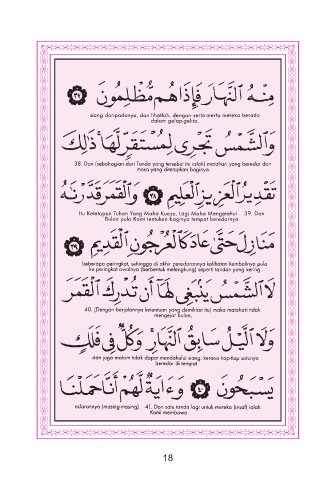 مِنْهُ ٱلنَّهَارَ فَإِذَا هُم مُّظْلِمُونَ ٣٧
siang daripadanya, dan lihatlah, dengan serta-merta mereka berada
dalam gelap-gelita.
وَٱلشَّمْسُ تَجْرِى لِمُسْتَقَرٍّ لَّهَا ذَٰلِكَ
38. Dan (sebahagian dari Tanda yang tersebut itu ialah) matahari yang beredar dan
masa yang ditetapkan baginya.
تَقْدِيرُ ٱلْعَزِيزِ ٱلْعَلِيمِ ٣٨ وَٱلْقَمَرَ قَدَّرْنَٰهُ
Itu Ketetapan Tuhan Yang Maha Kuasa, Lagi Maha Mengetahui 39. Dan
Bulan pula Kami tentukan baginya tempat beredarnya
مَنَازِلَ حَتَّىٰ عَادَ كَٱلْعُرْجُونِ ٱلْقَدِيمِ ٣٩
beberapa peringkat, sehingga di akhir peredarannya kelihatan kembalinya pula
ke peringkat awalnya (berbentuk melengkung) seperti tandan yang kering
لَا ٱلشَّمْسُ يَنۢبَغِى لَهَآ أَن تُدْرِكَ ٱلْقَمَرَ
40. (Dengan berjalannya ketentuan yang demikian itu) maka matahari tidak
mengejar bulan,
وَلَا ٱلَّيْلُ سَابِقُ ٱلنَّهَارِ وَكُلٌّ فِى فَلَكٍ
dan juga malam tidak dapat mendahului siang; kerana tiap-tiap satunya
beredar di tempat
يَسْبَحُونَ ٤٠ وَءَايَةٌ لَّهُمْ أَنَّا حَمَلْنَا
edarannya (masing-masing). 41. Dan satu tanda lagi untuk mereka (insaf) ialah
Kami membawa
18